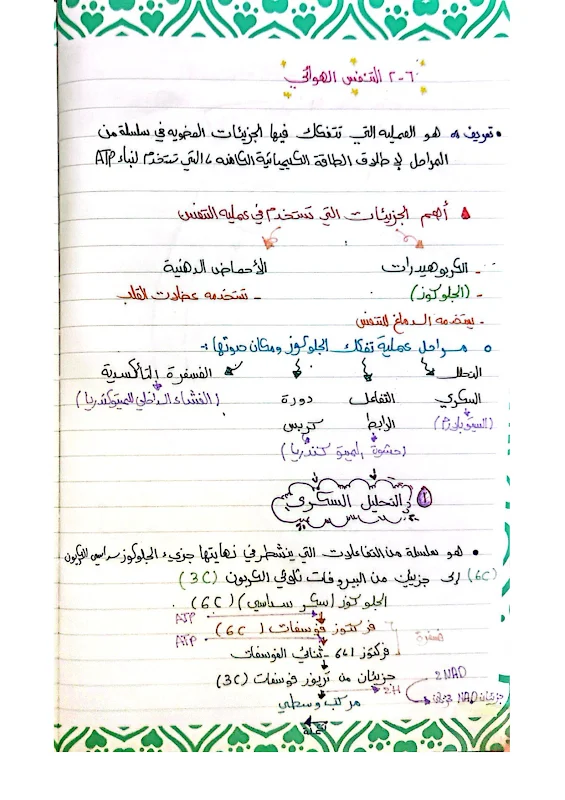 ٦-٢ التنفس الهوائي
• تعريف هو العملية التي تتفكك فيها الجزيئات العضوية في سلسلة من
المراحل لإطلاق الطاقة الكيميائية الكامنه، التي تستخدم لبناء ATP
أهم الجزيئات التي تستخدم في عملية التنفس
- الكربوهيدرات الأحماض الدهنية
- (الجلوكوز) - تستخدمه عضلات القلب
- يستخدمه الدماغ للتنفس
مراحل عملية تفكك الجلوكوز ومكان حدوثها :-
التحلل الفسفرة التأكسدية
السكري التفاعل دورة (الغشاء الداخلي للميتوكندريا)
(السيتوبلازم) الرابط كريس
(حشوة الميتوكندريا)
① التحليل السكري
• هو سلسلة من التفاعلات التي ينشطر في نهايتها جزيء الجلوكوز سداسي الكربون
(6C) إلى جزيئان من البيروفات ثلاثي الكربون (3C)
الجلوكوز (سكر سداسي) (6C)
ATP
فركتوز فوسفات (6C)
فسفرة
ATP
فركتوز 1،6 - ثنائي الفوسفات
جزيئان من تريوز فوسفات (3C)
2NAD
2H
جزيئان NAD
مركب وسطي
تكملة